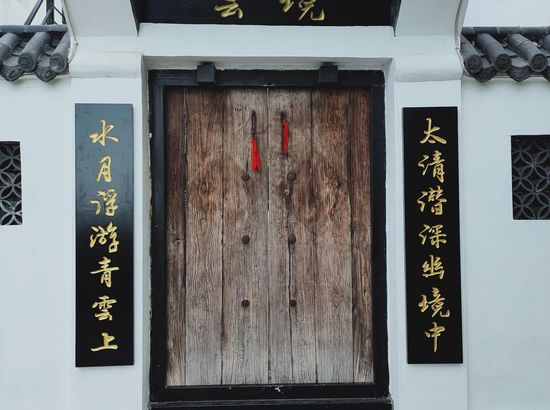 雲境
太清潛深幽境中
水月浮游青雲上